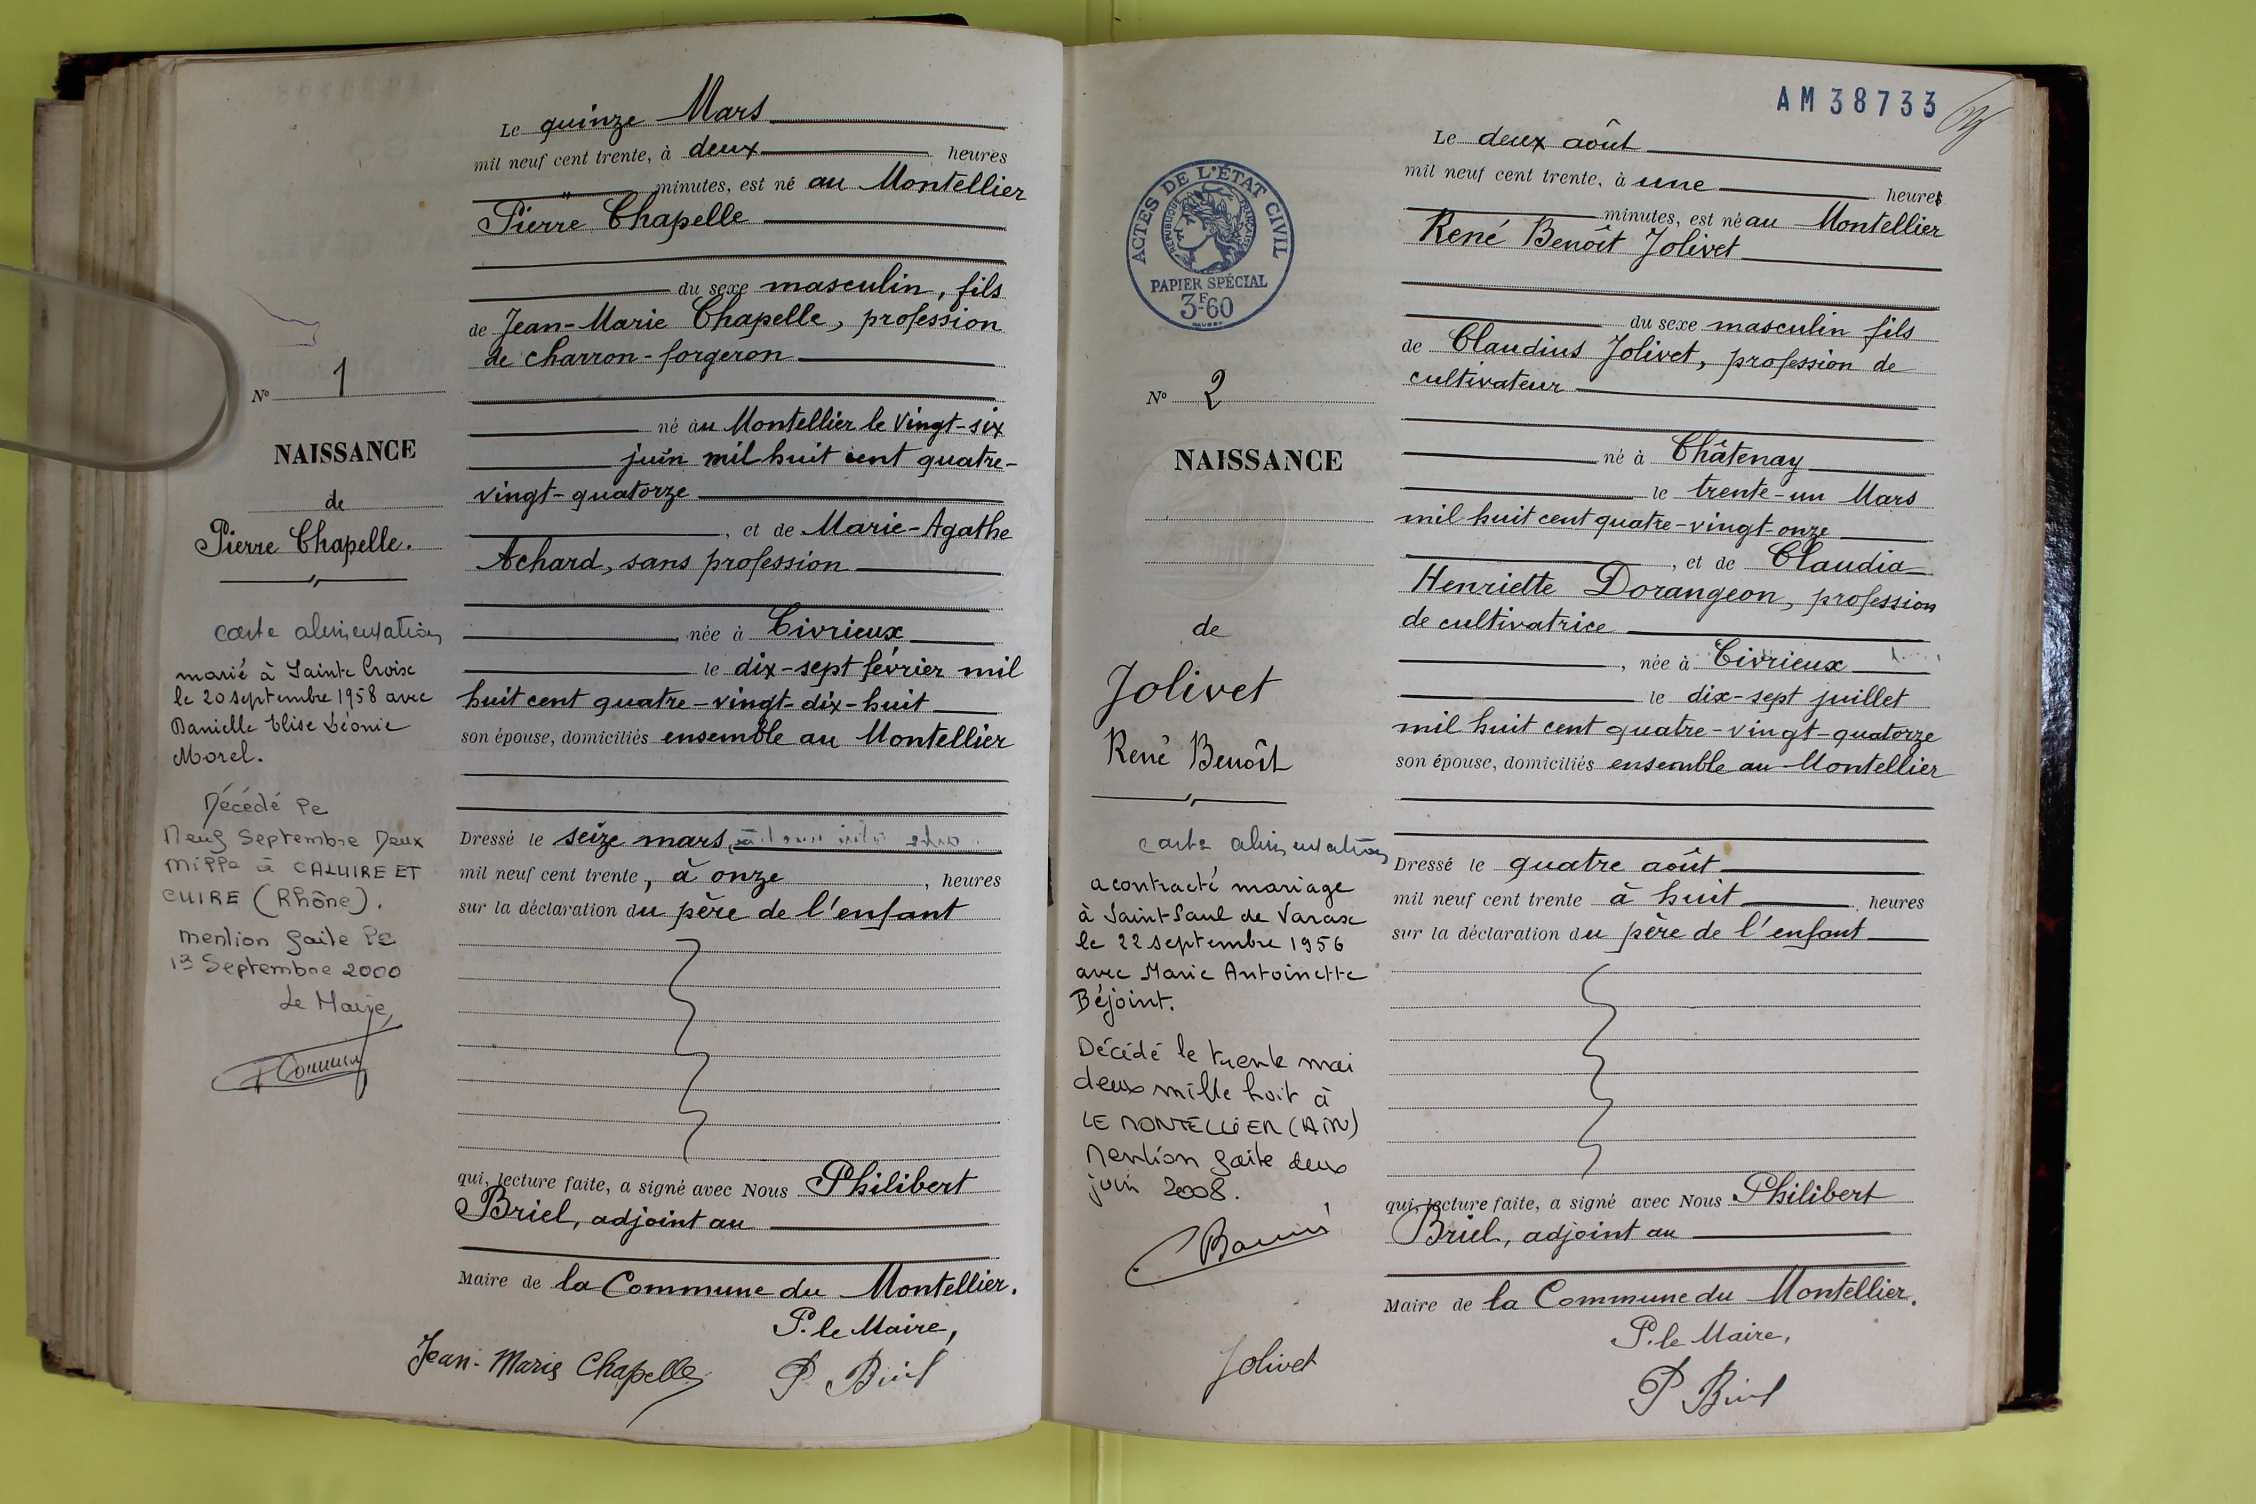 Le quinze Mars
mil neuf cent trente, à deux heures
" minutes, est né au Montellier
Pierre Chapelle
du sexe masculin, fils
de Jean-Marie Chapelle, profession
de charron-forgeron
né au Montellier le vingt-six
juin mil huit cent quatre-
vingt-quatorze
, et de Marie-Agathe
Achard, sans profession
née à Civrieux
le dix-sept février mil
huit cent quatre-vingt-dix-huit
son épouse, domiciliés ensemble au Montellier
Dressé le seize mars,
mil neuf cent trente, à onze , heures
sur la déclaration du père de l'enfant
qui, lecture faite, a signé avec Nous Philibert
Briel, adjoint au
Maire de la Commune du Montellier.
P. le Maire,
Jean-Marie Chapelle P Briel
No 1
NAISSANCE
de
Pierre Chapelle.
carte alimentation
marié à Sainte Croix
le 20 septembre 1958 avec
Danielle Elise Léonie
Morel.
Décédé le
Neuf Septembre Deux
Mille à CALUIRE ET
CUIRE (Rhône).
mention faite le
13 Septembre 2000
Le Maire,
AM38733
Le deux août
mil neuf cent trente, à une heure
minutes, est né au Montellier
René Benoît Jolivet
du sexe masculin fils
de Claudius Jolivet, profession de
cultivateur
né à Châtenay
le trente-un Mars
mil huit cent quatre-vingt-onze
, et de Claudia
Henriette Dorangeon, profession
de cultivatrice
, née à Civrieux
le dix-sept juillet
mil huit cent quatre-vingt-quatorze
son épouse, domiciliés ensemble au Montellier
Dressé le quatre août
mil neuf cent trente à huit heures
sur la déclaration du père de l'enfant
qui, lecture faite, a signé avec Nous Philibert
Briel, adjoint au
Maire de la Commune du Montellier.
P. le Maire,
Jolivet P Briel
ACTES DE L'ÉTAT CIVIL
RÉPUBLIQUE FRANÇAISE
PAPIER SPÉCIAL
3F60
No 2
NAISSANCE
de
Jolivet
René Benoît
carte alimentation
a contracté mariage
à Saint-Paul de Varax
le 22 septembre 1956
avec Marie Antoinette
Béjoint.
Décédé le trente mai
deux mille huit à
LE MONTELLIER (AIN)
Mention faite deux
juin 2008.